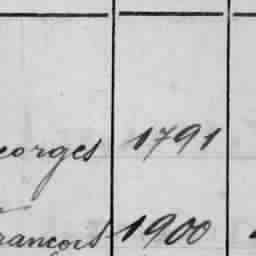 eorges 1791
rançois 1900